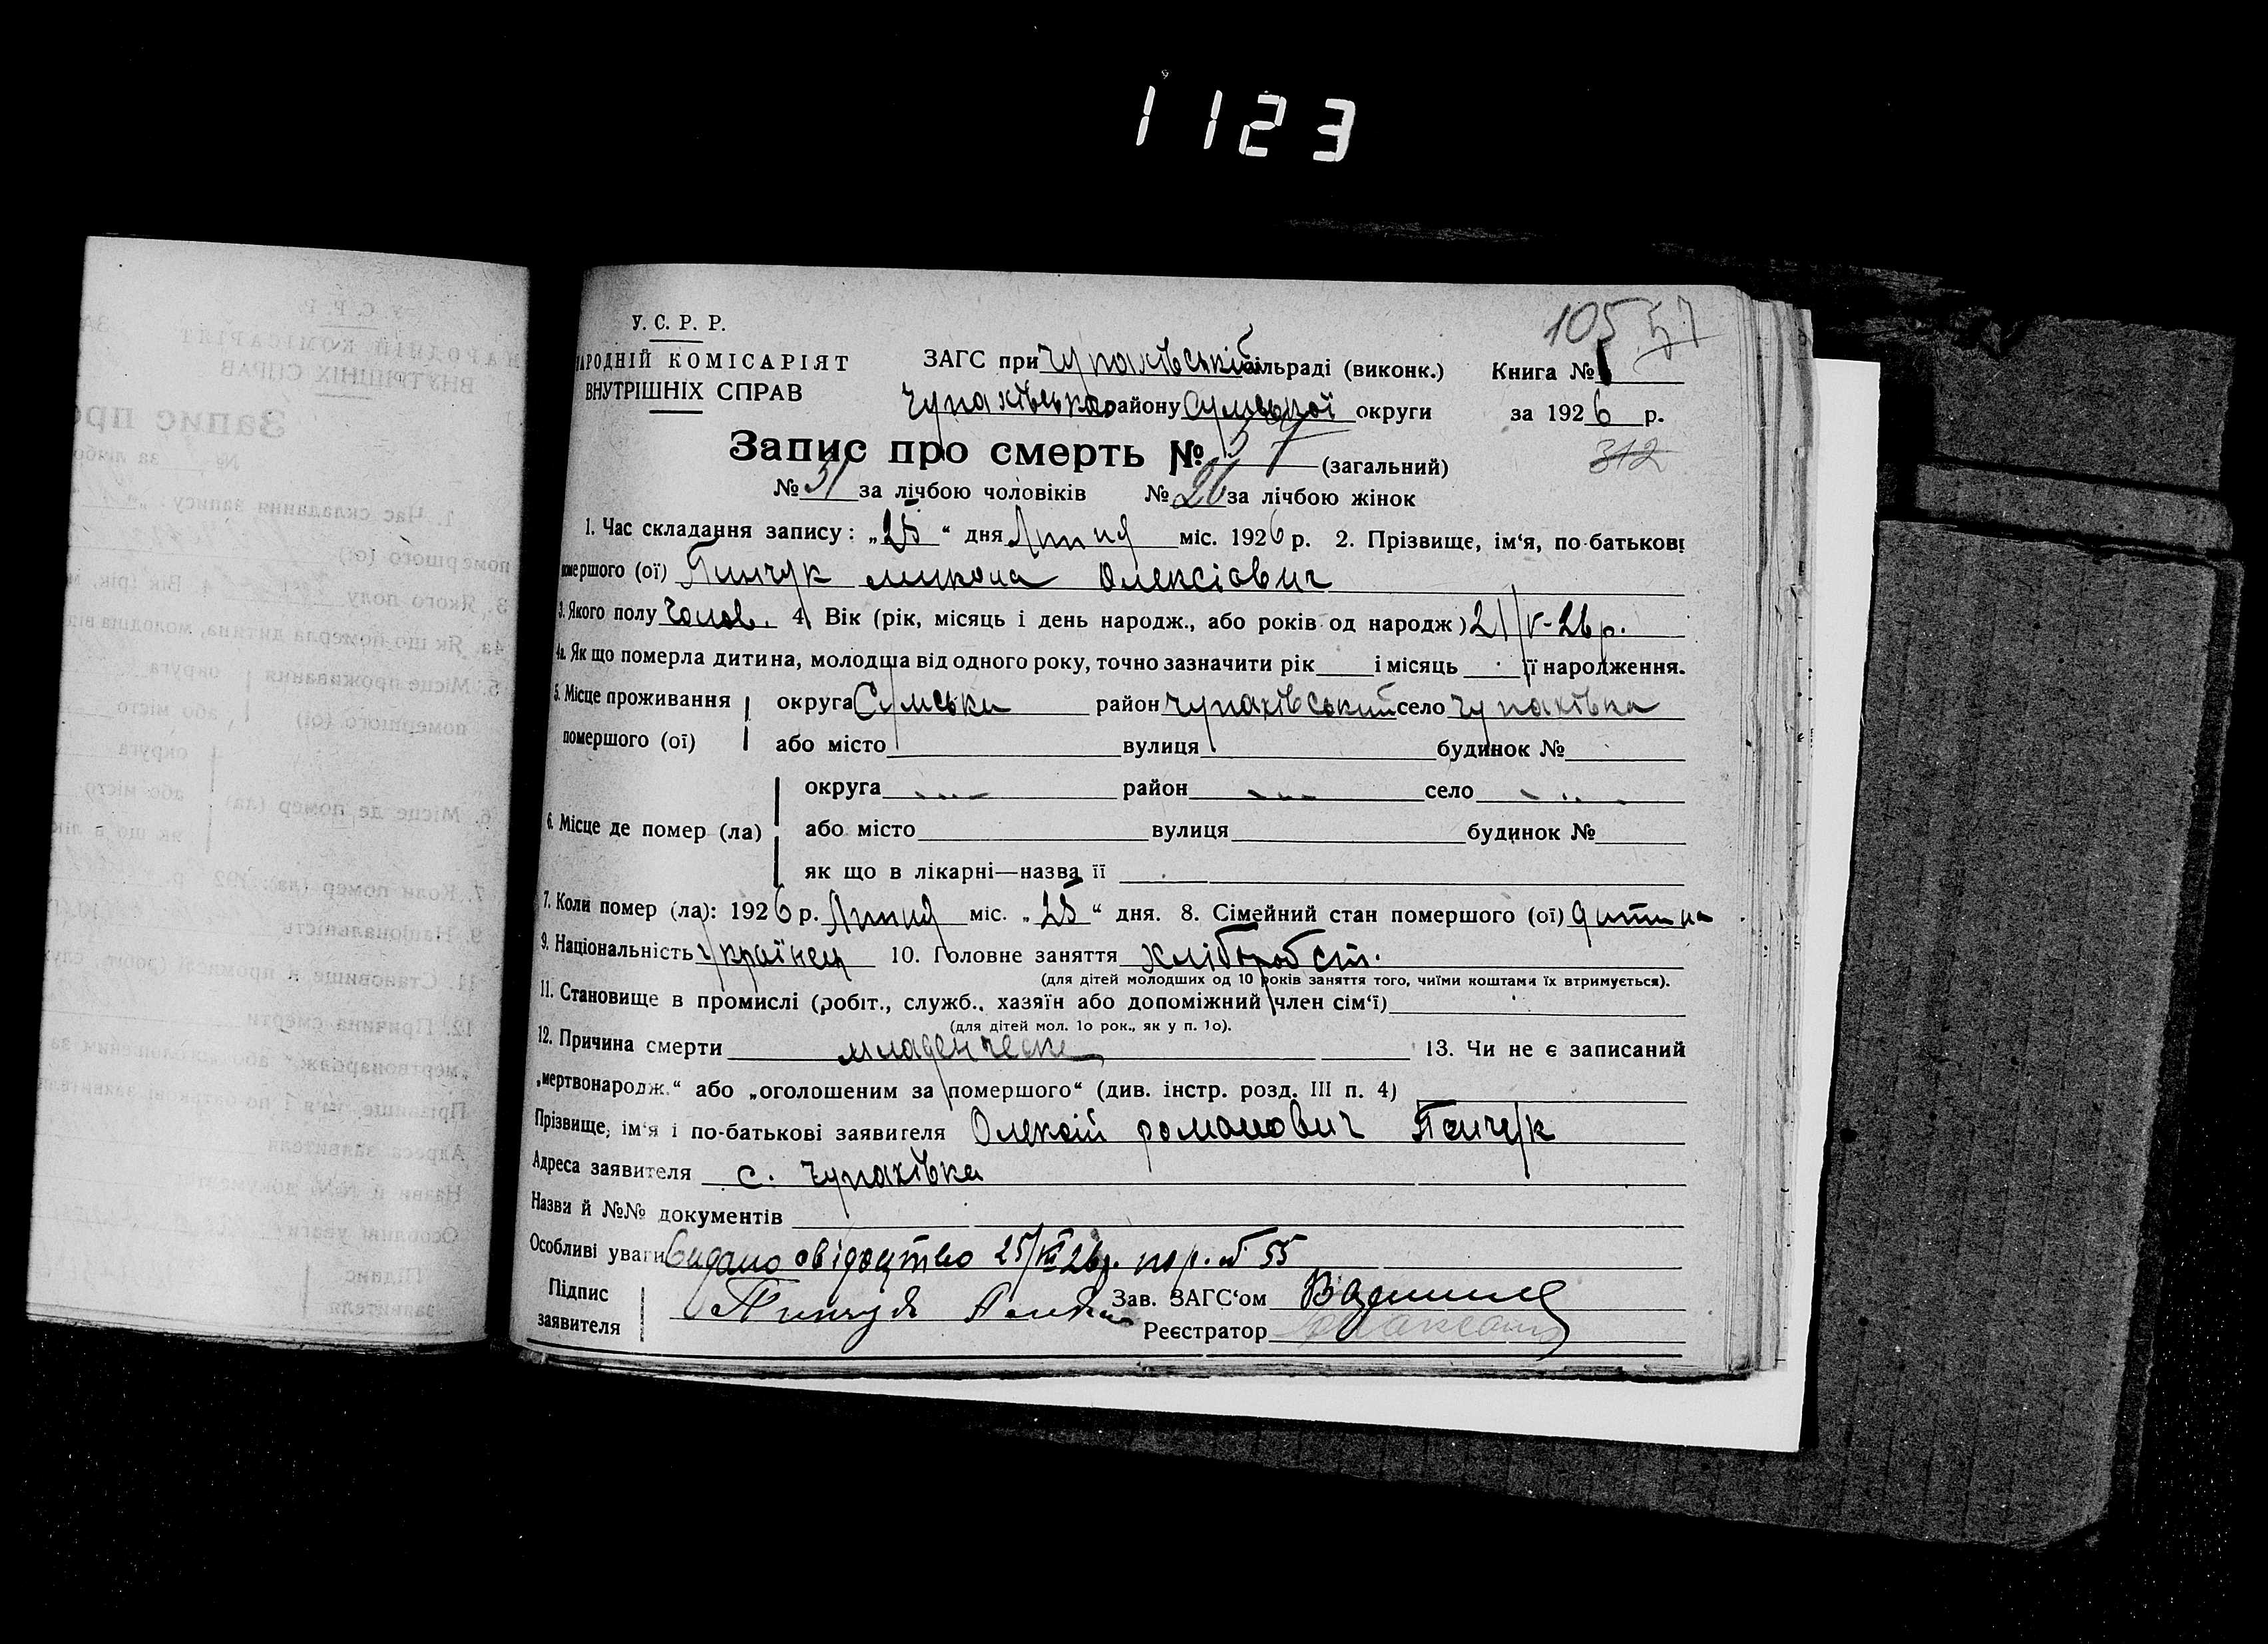 1123
105 57
У. С. Р. Р.
НАРОДНІЙ КОМІСАРІЯТ
ВНУТРІШНІХ СПРАВ
ЗАГС при Чупахівській сільраді (виконк.) Книга № 1
Чупахівського району Сумської округи за 1926 р.
Запис про смерть № 57 (загальний) 312
№ 31 за лічбою чоловіків № 26 за лічбою жінок
1. Час складання запису: „25“ дня Липня міс. 1926 р. 2. Прізвище, ім‘я, по-батькові
помершого (ої) микола Олексіович
3. Якого полу Чолов. 4. Вік (рік, місяць і день народж., або років од народж) 21/V-26 р.
4а. Як що померла дитина, молодша від одного року, точно зазначити рік і місяць її народження.
5. Місце проживання округа Сумська район Чупахівський село Чупахівка
помершого (ої) або місто вулиця будинок №
округа район село
6. Місце де помер (ла) або місто вулиця будинок №
як що в лікарні—назва її
7. Коли помер (ла): 1926 р. Липня міс. „25“ дня. 8. Сімейний стан помершого (ої) дитина
9. Національність українец 10. Головне заняття хлібороб ст.
(для дітей молодших од 10 років заняття того, чиїми коштами їх втримується).
11. Становище в промислі (робіт., служб., хазяїн або допоміжний член сім‘ї)
(для дітей мол. 1о рок., як у п. 1о).
12. Причина смерти младенческе 13. Чи не є записаний
„мертвонародж.“ або „оголошеним за помершого“ (див. інстр. розд. III п. 4)
Прізвище, ім‘я і по-батькові заявителя Олексій романович
Адреса заявителя с. Чупахівка
Назви й №№ документів
Особливі уваги Видано свідоцтво 25/VII 26р. по р. № 55
Підпис
заявителя
Зав. ЗАГС‘ом
Реєстратор